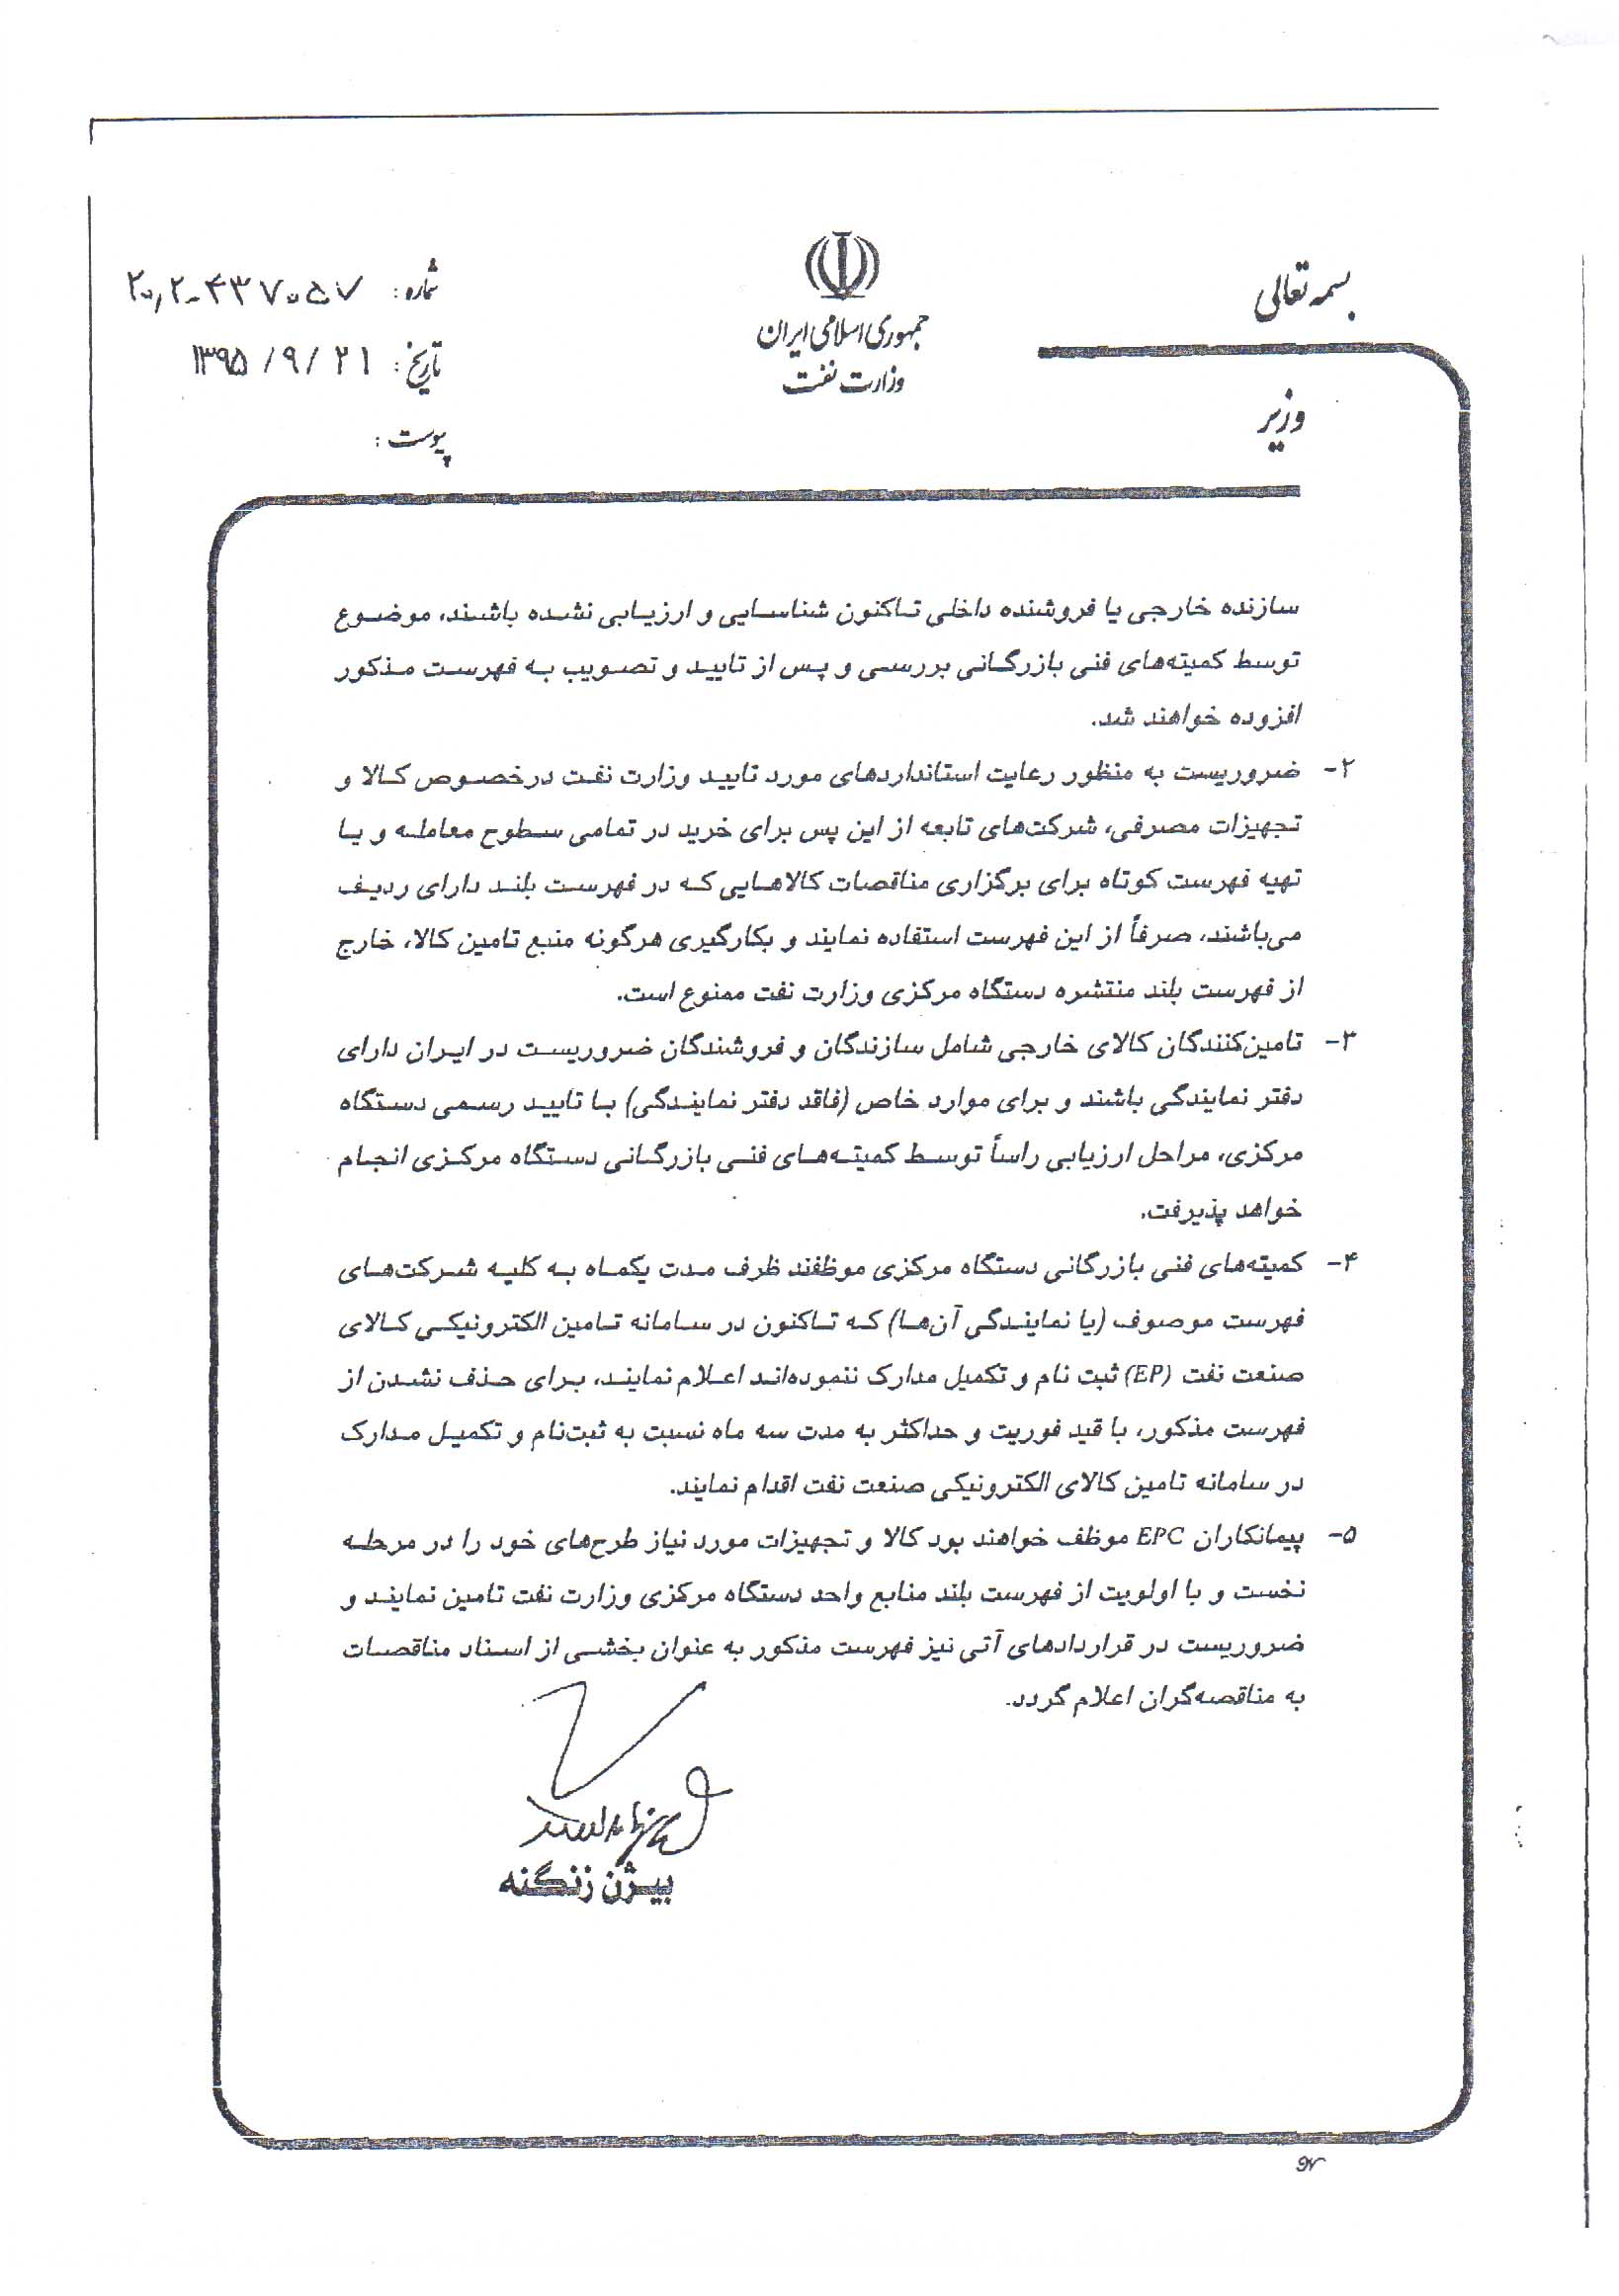 بسمه تعالی
جمهوری اسلامی ایران
وزارت نفت
وزیر
شماره: ۲۰٫۲-۴۳۷۰۵۷
تاریخ: ۱۳۹۵/۹/۲۱
پیوست:
سازنده خارجی یا فروشنده داخلی تاکنون شناسایی و ارزیابی نشده باشند، موضوع
توسط کمیته‌های فنی بازرگانی بررسی و پس از تایید و تصویب به فهرست مذکور
افزوده خواهند شد.
۲- ضروریست به منظور رعایت استانداردهای مورد تایید وزارت نفت درخصوص کالا و
تجهیزات مصرفی، شرکت‌های تابعه از این پس برای خرید در تمامی سطوح معامله و یا
تهیه فهرست کوتاه برای برگزاری مناقصات کالاهایی که در فهرست بلند دارای ردیف
می‌باشند، صرفاً از این فهرست استفاده نمایند و بکارگیری هرگونه منبع تامین کالا، خارج
از فهرست بلند منتشره دستگاه مرکزی وزارت نفت ممنوع است.
۳- تامین‌کنندگان کالای خارجی شامل سازندگان و فروشندگان ضروریست در ایران دارای
دفتر نمایندگی باشند و برای موارد خاص (فاقد دفتر نمایندگی) با تایید رسمی دستگاه
مرکزی، مراحل ارزیابی راساً توسط کمیته‌های فنی بازرگانی دستگاه مرکزی انجام
خواهد پذیرفت.
۴- کمیته‌های فنی بازرگانی دستگاه مرکزی موظفند ظرف مدت یکماه به کلیه شرکت‌های
فهرست موصوف (یا نمایندگی آن‌ها) که تاکنون در سامانه تامین الکترونیکی کالای
صنعت نفت (EP) ثبت نام و تکمیل مدارک ننموده‌اند اعلام نمایند، برای حذف نشدن از
فهرست مذکور، با قید فوریت و حداکثر به مدت سه ماه نسبت به ثبت‌نام و تکمیل مدارک
در سامانه تامین کالای الکترونیکی صنعت نفت اقدام نمایند.
۵- پیمانکاران EPC موظف خواهند بود کالا و تجهیزات مورد نیاز طرح‌های خود را در مرحله
نخست و با اولویت از فهرست بلند منابع واحد دستگاه مرکزی وزارت نفت تامین نمایند و
ضروریست در قراردادهای آتی نیز فهرست مذکور به عنوان بخشی از اسناد مناقصات
به مناقصه‌گران اعلام گردد.
بیژن زنگنه